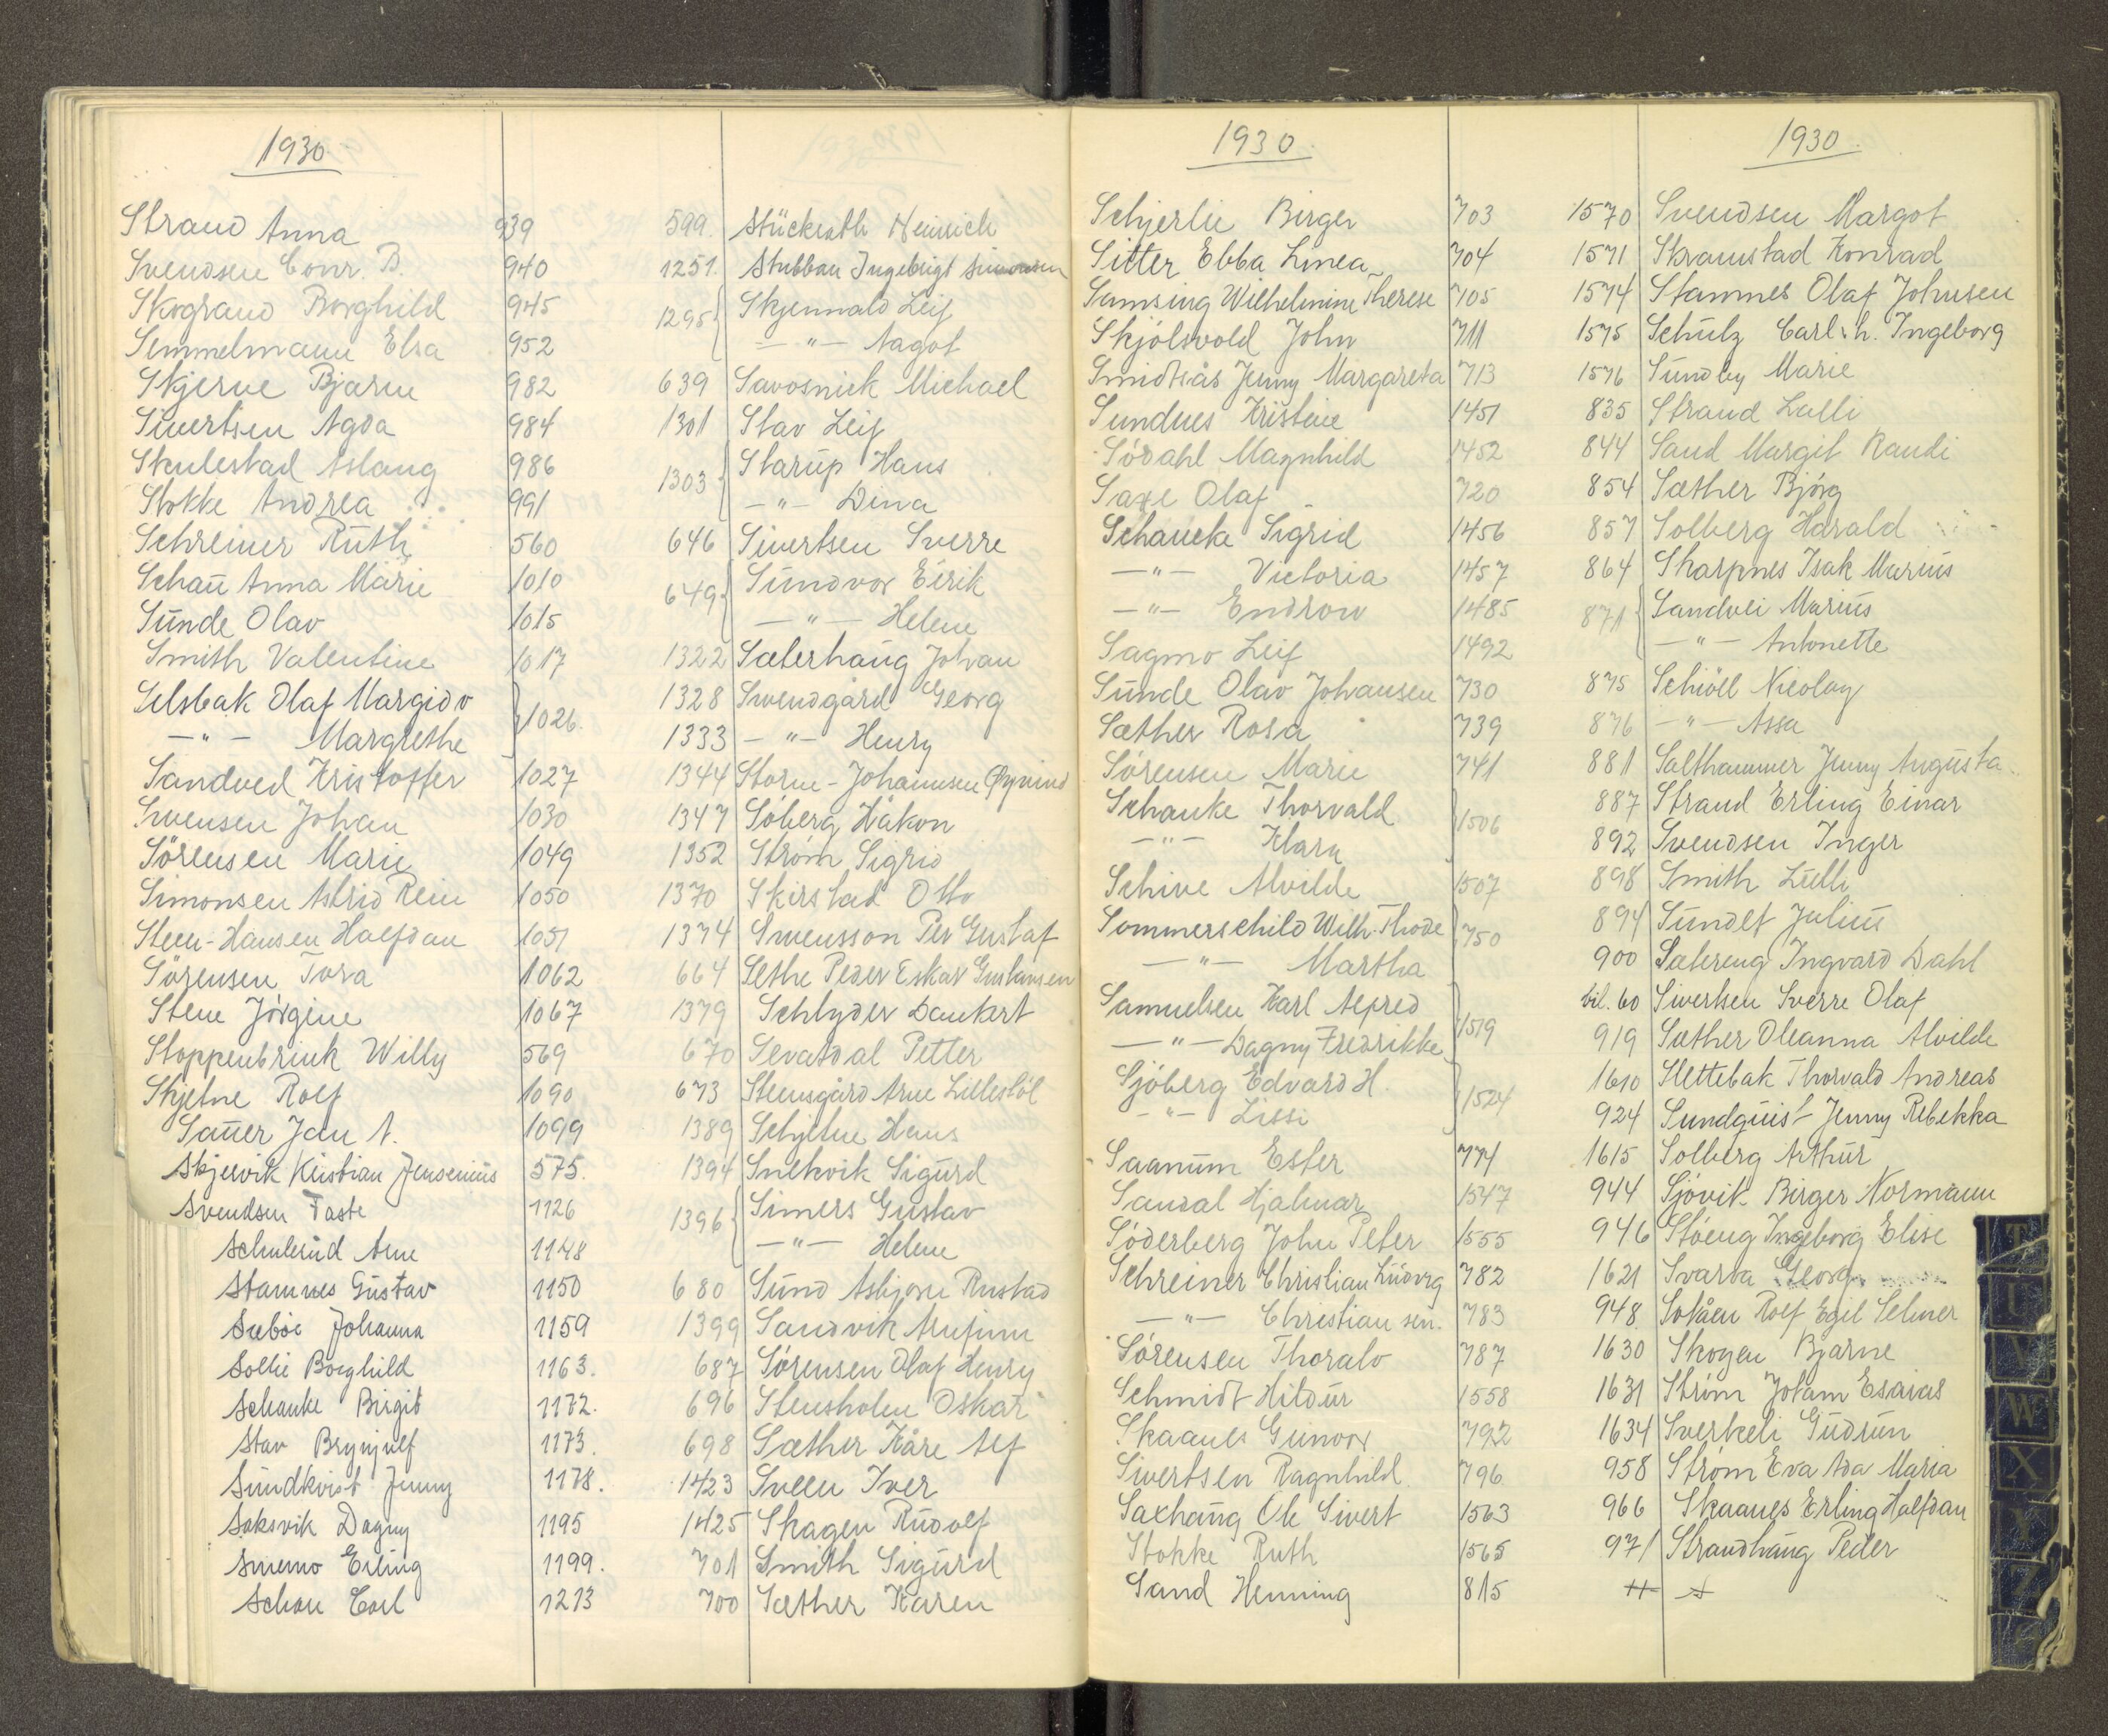 1930
Strand Anna 939
Svendsen Conr. B. 940
Skogrand Borghild 945
Semmelmann Elsa 952
Skjerve Bjarne 982
Sivertsen Agda 984
Skulestad Aslaug 986
Stokke Andrea 991
Schreiner Ruth 560
Schau Anna Marie 1010
Sunde Olav 1015
Smith Valentine 1017
Selsbak Olaf Margido
—"— Margrethe } 1026.
Sandved Kristoffer 1027
Svensen Johan 1030
Sörensen Marie 1049
Simonsen Astrid Rein 1050
Steen-Hansen Halfdan 1051
Sörensen Tora 1062
Stene Jörgine 1067
Stoppenbrink Willy 569
Skjetne Rolf 1090
Sauer Jan A. 1099
Skjervik Kristian Jensenius 575.
Svendsen Taste 1126
Schulerud Arne 1148
Stamnes Gustav 1150
Sæböe Johanna 1159
Sollie Borghild 1163.
Schanke Birgit 1172.
Stav Brynjulf 1173.
Sundkvist Jenny 1178.
Saksvik Dagny 1195
Smemo Erling 1199.
Schou Carl 1213
599. Stückrath Heinrich
1251. Stubban Ingebrigt Simonsen
1295 { Skjennald Leif
—"— Aagot
639 Savosnick Michael
1301 Stav Leif
1303 { Starup Hans
—"— Dina
646 Sivertsen Sverre
649 { Sundvor Eirik
—"— Helene
1322 Sæterhaug Johan
1328 Svendgård Georg
1333 —"— Henry
1344 Storm-Johannsen Øyvind
1347 Söberg Håkon
1352 Ström Sigrid
1370 Skirstad Otto
1374 Swensson Per Gustaf
664 Sethe Peder Eskar
1379 Schlyder Dankert
670 Sevatdal Petter
673 Steensgård Arne Lillestöl
1389 Schjetne Hans
1394 Snekvik Sigurd
1396 { Simers Gustav
—"— Helene
680 Sund Asbjørn Rustad
1399 Sandvik Arnfinn
687 Sörensen Olaf Henry
696 Stensholen Oskar
698 Sæther Kåre Alf
1423 Sveen Iver
1425 Skagen Rudolf
701 Smith Sigurd
700 Sæther Karen
1930
Schjerlie Birger 703
Sitter Ebba Linea 704
Samsing Wilhelmine Therese 705
Skjölsvold John 711
Smidtsås Jenny Margareta 713
Sundnes Kristine 1451
Södahl Magnhild 1452
Saxe Olaf 720
Schancke Sigrid 1456
—"— Victoria 1457
—"— Endrow 1485
Sagmo Leif 1492
Sunde Olav Johansen 730
Sæther Rosa 739
Sörensen Marie 741
Schanke Thorvald
—"— Klara } 1506
Schive Alvilde 1507
Sommerschild Wilh. Thode
—"— Martha } 750
Samuelsen Karl Alfred
—"— Dagny Fredrikke } 1519
Sjöberg Edvard H.
—"— Lissi } 1524
Saanum Ester 774
Sandal Hjalmar 1547
Söderberg John Peter 1555
Schreiner Christian Ludvig 782
—"— Christian sen. 783
Sörensen Thoralv 787
Schmidt Hildur 1558
Skaanes Gunvor 792
Sivertsen Ragnhild 796
Saxhaug Ole Sivert 1563
Stokke Ruth 1565
Sand Henning 815
1930
1570 Svendsen Margot
1571 Skramstad Konrad
1574 Stamnes Olaf Johnsen
1575 Schulz Carl h. Ingeborg
1576 Sundby Marie
835 Strand Lalli
844 Sand Margit Randi
854 Sæther Bjørg
857 Solberg Harald
864 Skarpnes Isak Marius
871 { Sandvei Marius
—"— Antonette
875 Schiöll Nicolay
876 —"— Assa
881 Salthammer Jenny Augusta
887 Strand Erling Einar
892 Svendsen Inger
898 Smith Lulli
894 Sundet Julius
900 Sætereng Ingvard Dahl
bil. 60 Sivertsen Sverre Olaf
919 Sæther Oleanna Alvilde
1610 Slettebak Thorvald Andreas
924 Sundquist Jenny Rebekka
1615 Solberg Arthur
944 Sjövik Birger Normann
946 Stöeng Ingeborg Elise
1621 Svarva Georg
948 Rolf Egil Selmer
1630 Skogen Bjarne
1631 Ström Jotam Esaias
1634 Sverkeli Gudrun
958 Ström Eva Ada Maria
966 Skaanes Erling Halfdan
971 Strandhaug Peder
T
U
V
W
X
Y
Z